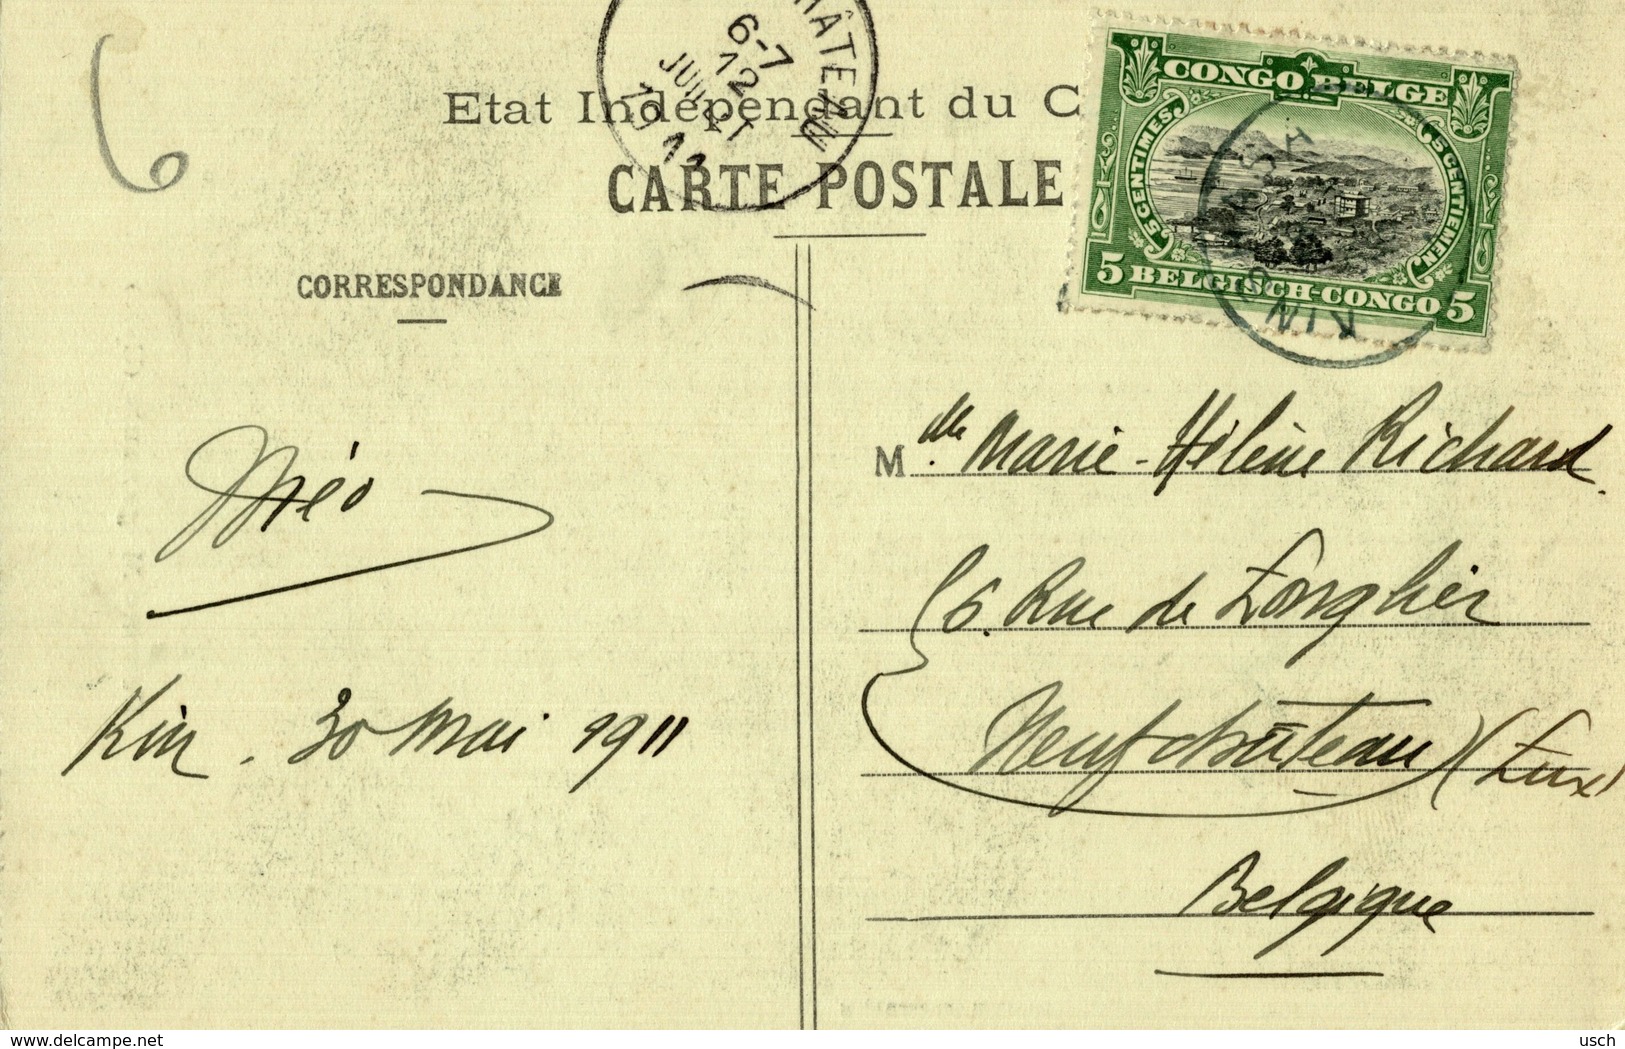 6
CHÂTEAU
6-7
12
JUIL
1911
Etat Indépendant du C
CARTE POSTALE
CONGO BELGE
5 CENTIMES
5 CENTIEMEN
5 BELGISCH-CONGO 5
CORRESPONDANCE
Méo
Kin. 30 Mai 1911
Mlle. Marie-Hélène Richard.
6. Rue de Longlier
Neufchâteau (Lux)
Belgique
delcampe.net
usch